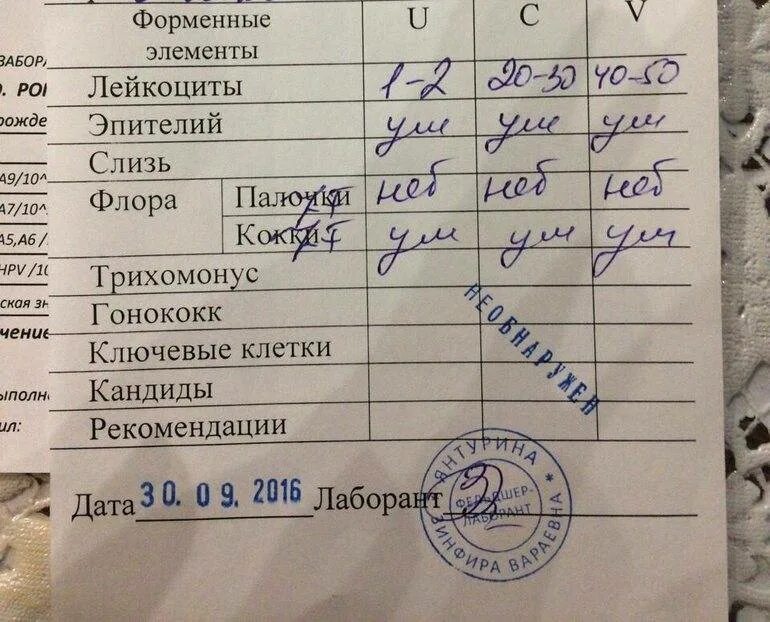 Форменные элементы U C V
Лейкоциты 1-2 20-30 40-50
Эпителий ум ум ум
Слизь
Флора Палочки неб неб неб
Кокки ум ум ум
Трихомонус
Гонококк
Ключевые клетки
Кандиды
Рекомендации
НЕОБНАРУЖЕН
Дата 30. 09. 2016 Лаборант
ЯНТУРИНА
ЗИНФИРА ВАРАЕВНА
ФЕЛЬДШЕР-
ЛАБОРАНТ
ЗАБОР
РОЖДЕ
А9/10^
А7/10^
А5,А6 /
HPV /10
ская зн
чение
ыполн
ил: